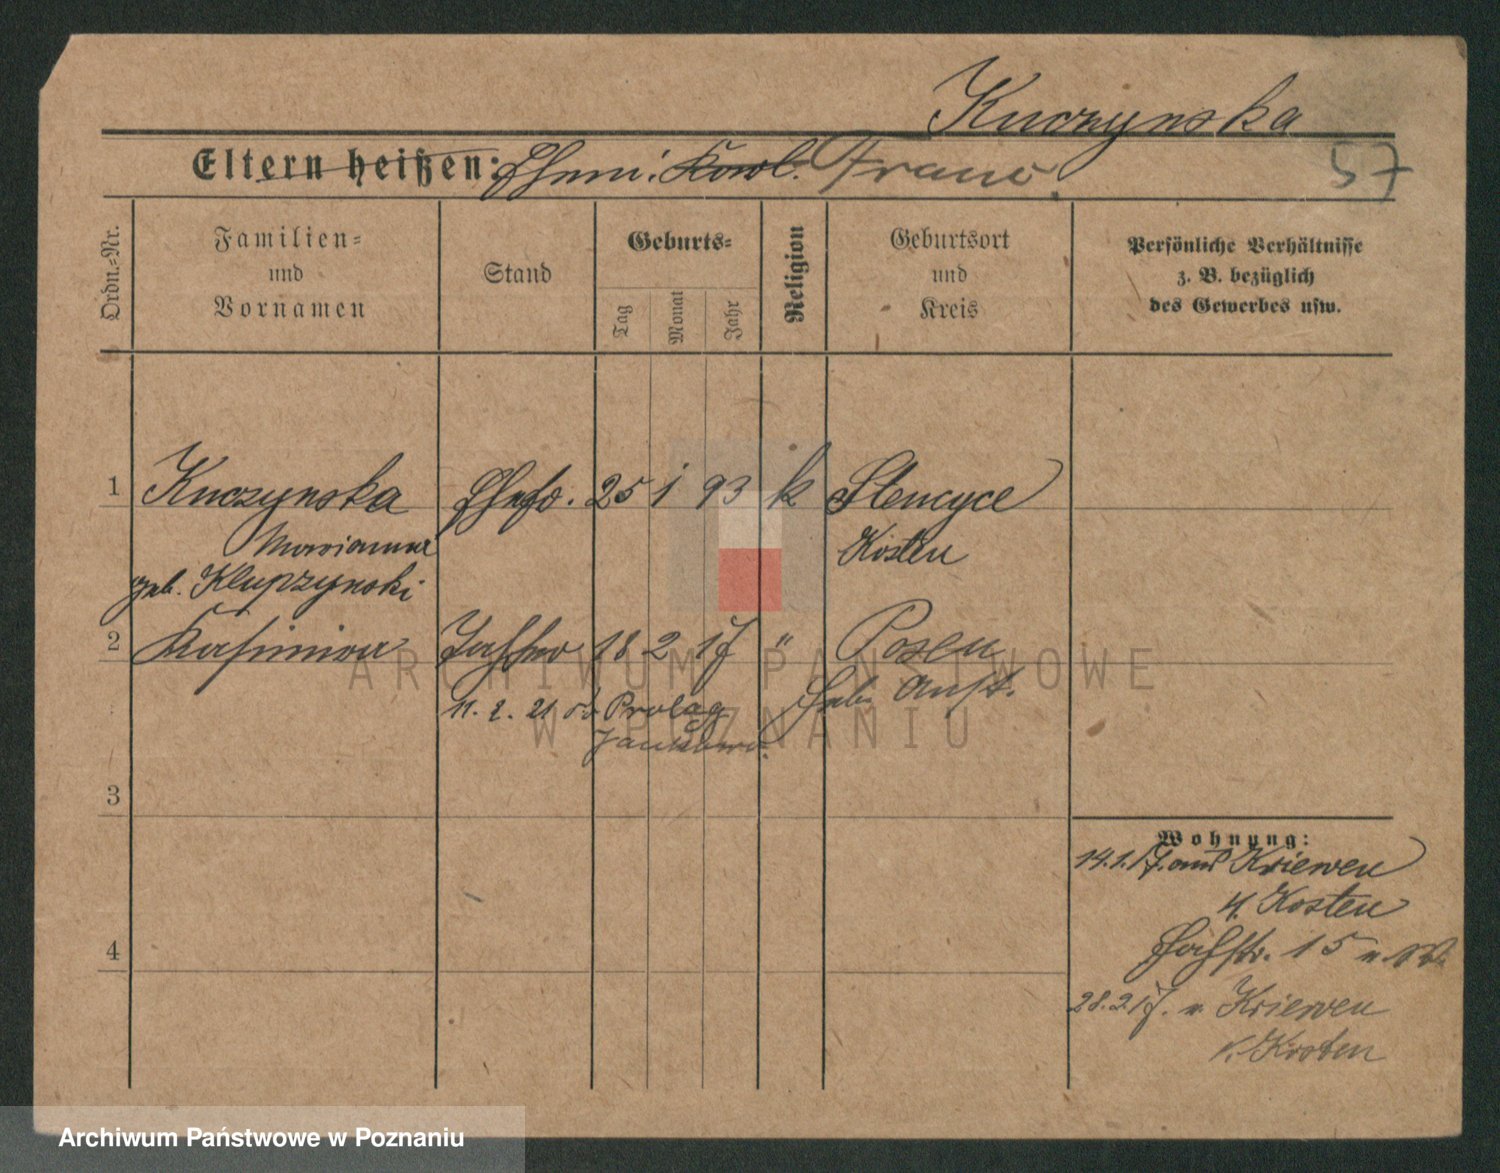 Kuczynska
Eltern heißen: Ehem. Karl. Franc.
57
Ordn.-Nr.
Familien-
und
Vornamen
Stand
Geburts-
Tag
Monat
Jahr
Religion
Geburtsort
und
Kreis
Persönliche Verhältnisse
z. B. bezüglich
des Gewerbes usw.
1 Kuczynska Ehefr. 25 1 93 k Slencyce
Marianna Kosten
geb. Klupczynski
2 Kasimira Tochter 18 2 17 " Posen
Heb. Anst.
11. 2. 21
3
4
Wohnung:
14.1.17. aus Kriewen
K. Kosten
15
28.2.17. n. Kriewen
K. Kosten
ARCHIWUM PAŃSTWOWE
W POZNANIU
Archiwum Państwowe w Poznaniu